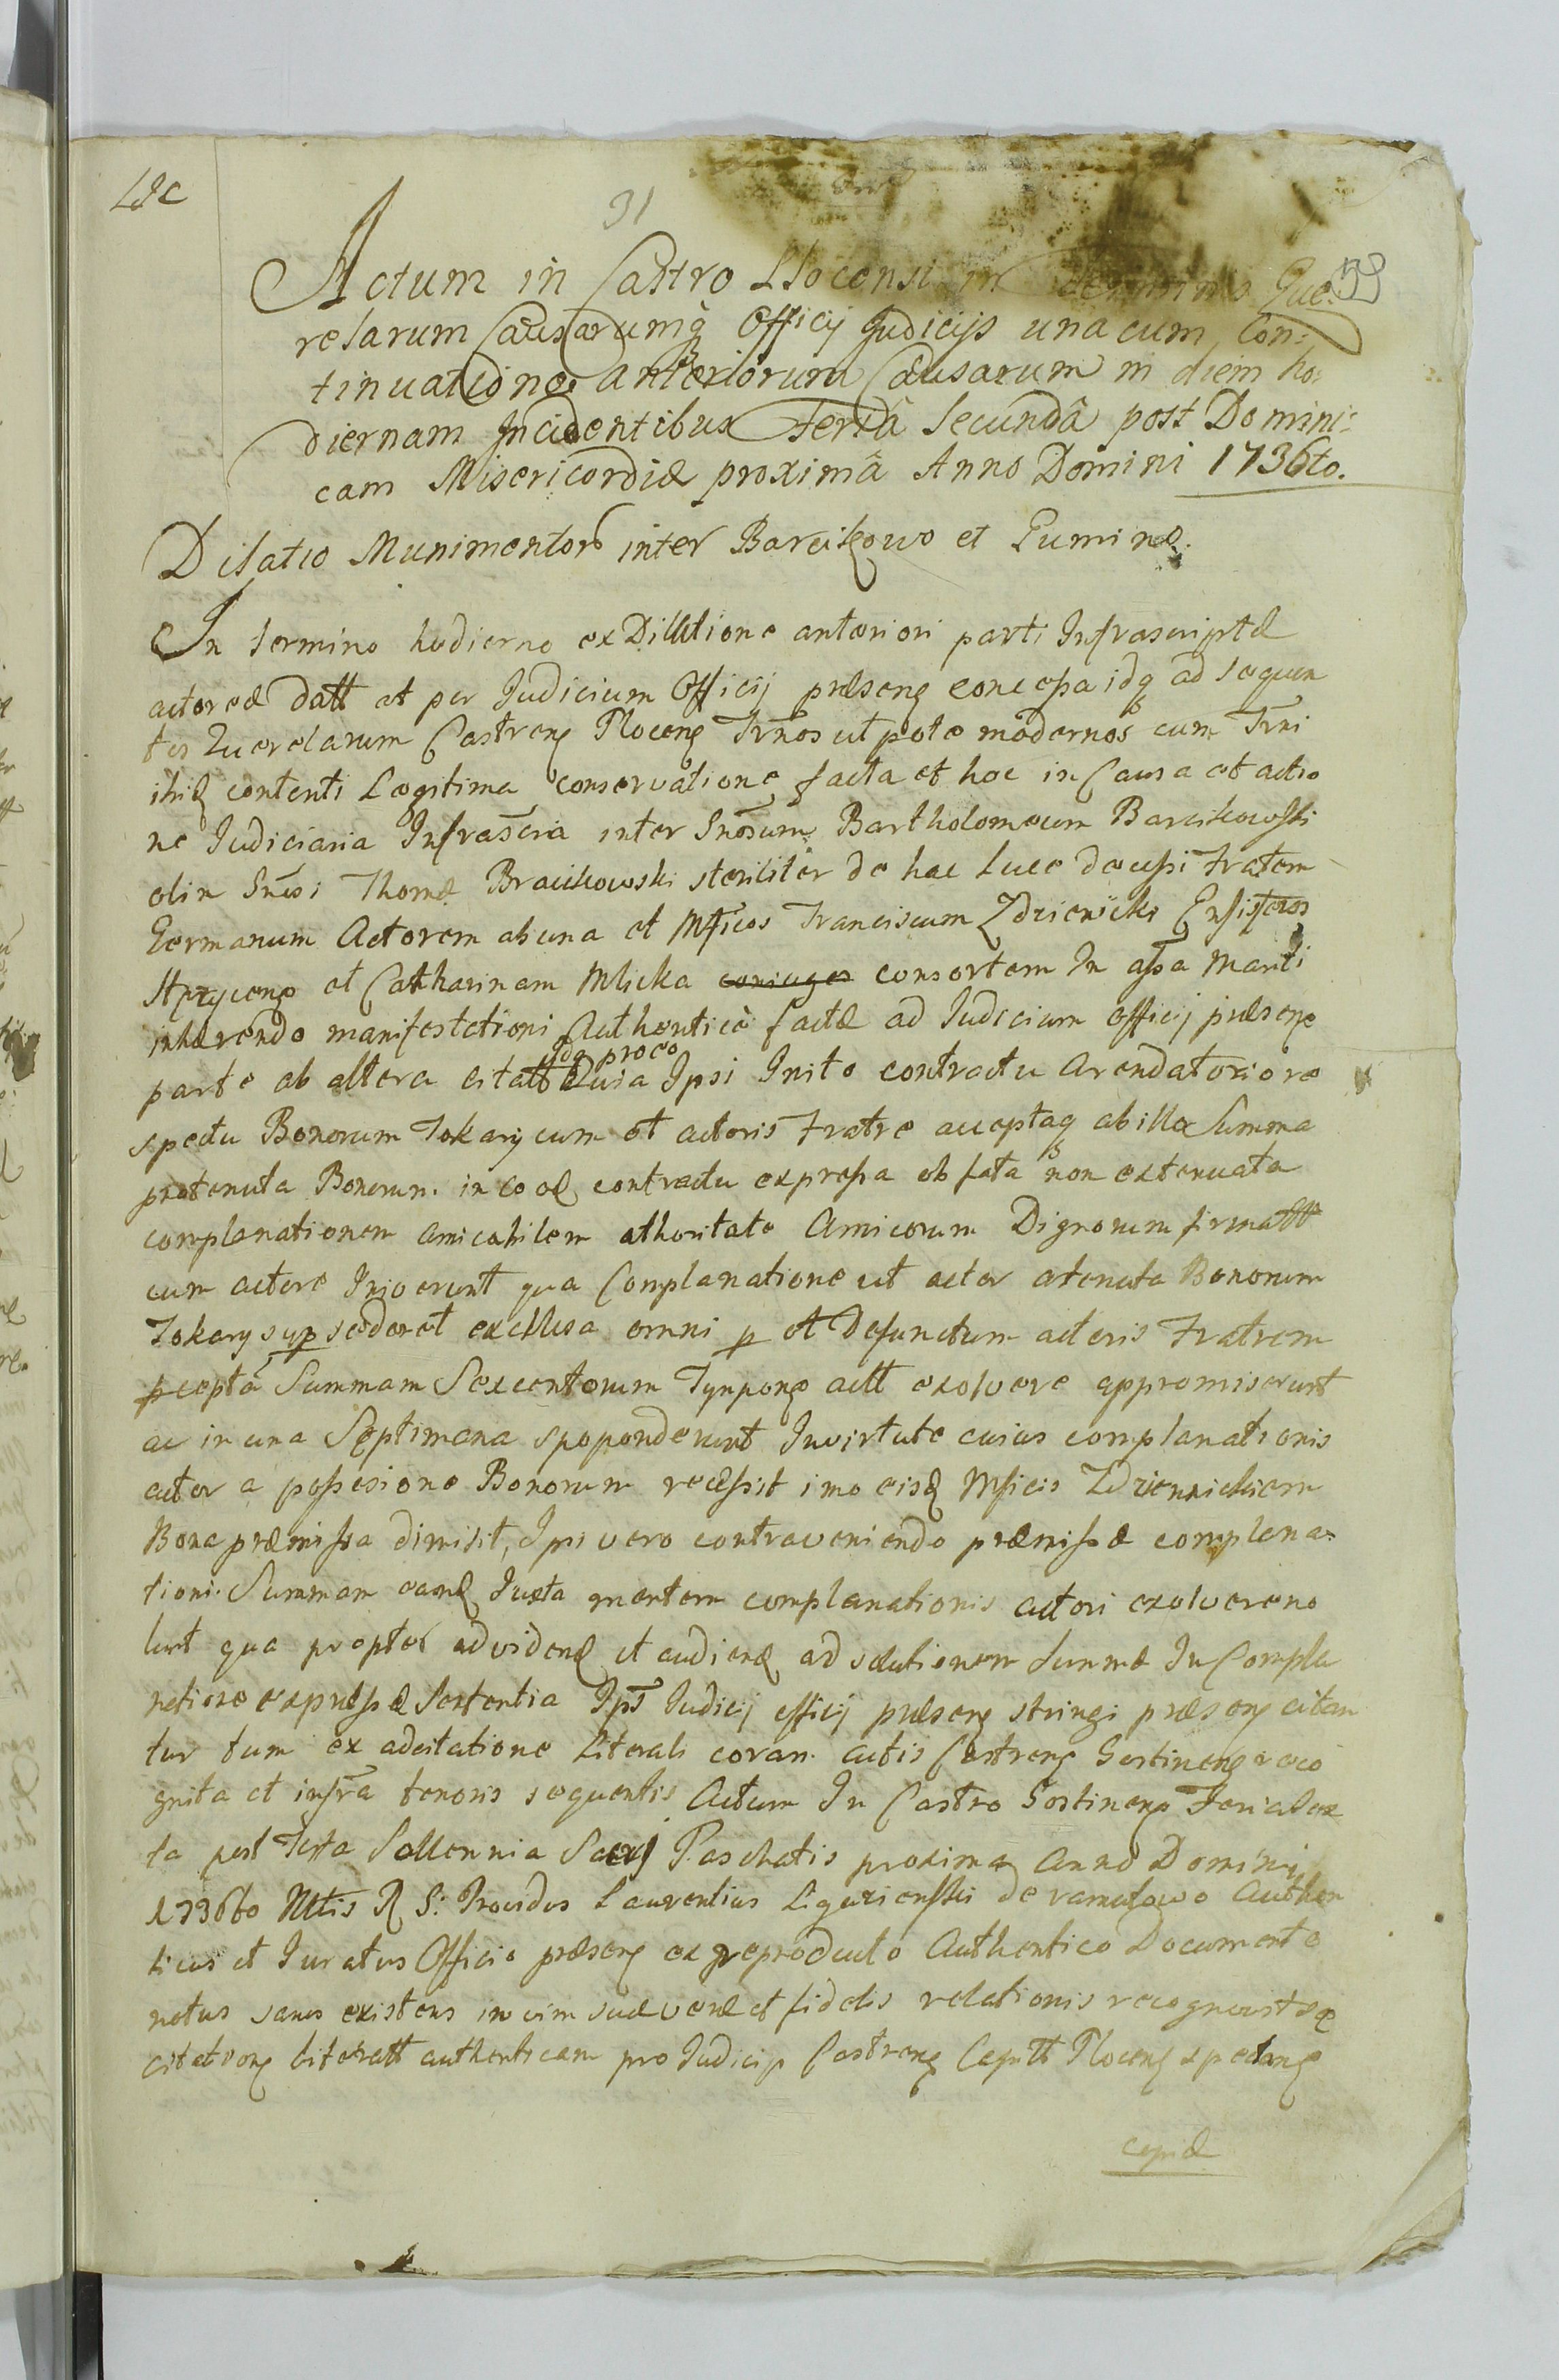 91
Actum in Castro Plocensi in Terminis Que:
relarum Causarumq Officij Judicijs una cum Con:
tinuatione Anteriorum Causarum in diem ho:
diernam Incidentibus Feria Secundâ post Domini:
cam Misericordiæ proximâ Anno Domini 1736to.
Dilatio Munimentor inter Barcikowo et Gumino.
In termino hodierno ex Dilatione anteriori parti Infrascriptæ
actoreæ datt et per Judicium Officij præsens concessa idq ad sequen
tes Querelarum Castrens Plocens Trnos utpote modernos cum Trni
ibid contenti Legitima conservatione facta et hoc in Causa et actio
ne Judiciaria Infrascria inter Gnosum Bartholomeum Barcikowski
olim Gnosi Thomæ Braickowski steriliter de hac luce decessi Fratem
Germanum Actorem ab una et Mficos Franciscum Zdzienicki Ensiferos
et Catharinam Mlicka coniuges consortem In assa Mariti
inhærendo manifestationi Authenticè factæ ad Judicium officij præsens
parte ab altera citatt Quia Ipsi Inito contractu Arendatorio re
spectu Bonorum Tokary cum et actoris Fratre acceptaq ab illo Summa
protenuta Bonorum in eod contractu expressa ob fata non extenuata
complanationem amicabilem athoritate Amicorum Dignorum firmatt
cum actore Inioerunt qua Complanatione ut actor atenuta Bonorum
Tokary supsederet exclusa omni p et Defunctum actoris Fratrem
pcepta Summam Sexcentorum Tynpons actt exolvere appromiserunt
ac in una Septimana spoponderunt Invirtute cuius complanationis
actor a possesione Bonorum recessit imo eisd Mficis Zdziennickiem
Bona præmissa dimisit, Ipsi vero contraveniendo præmissæ complana:
tioni Summam eamd Juxta mentem complanationis actori exolvere no
lunt qua propter ad vidend et audiend ad solutionem Summæ In Compla
natione expressæ Sententia Ips Judicij officij præsens stringi præsens citan
tur tum ex adcitatione Literali coram actis Castrens Gostinens reco
gnita et infra tenoris sequentis Actum In Castro Gostinens Feria Sex
ta post Festa Sollennia Sacri Paschatis proxima Anno Domini
1736to Mtis R S: Providus Laurentius Ligurienski de ramutowo Authen
ticus et Iuratus Officio præsens ex reproducto Authentico Documento
notus sanus existens in vim suæ veræ et fidelis relationis recognovit se
citations literatt authenticam pro Judicijs Castrens Captt Plocens spectans
copiæ